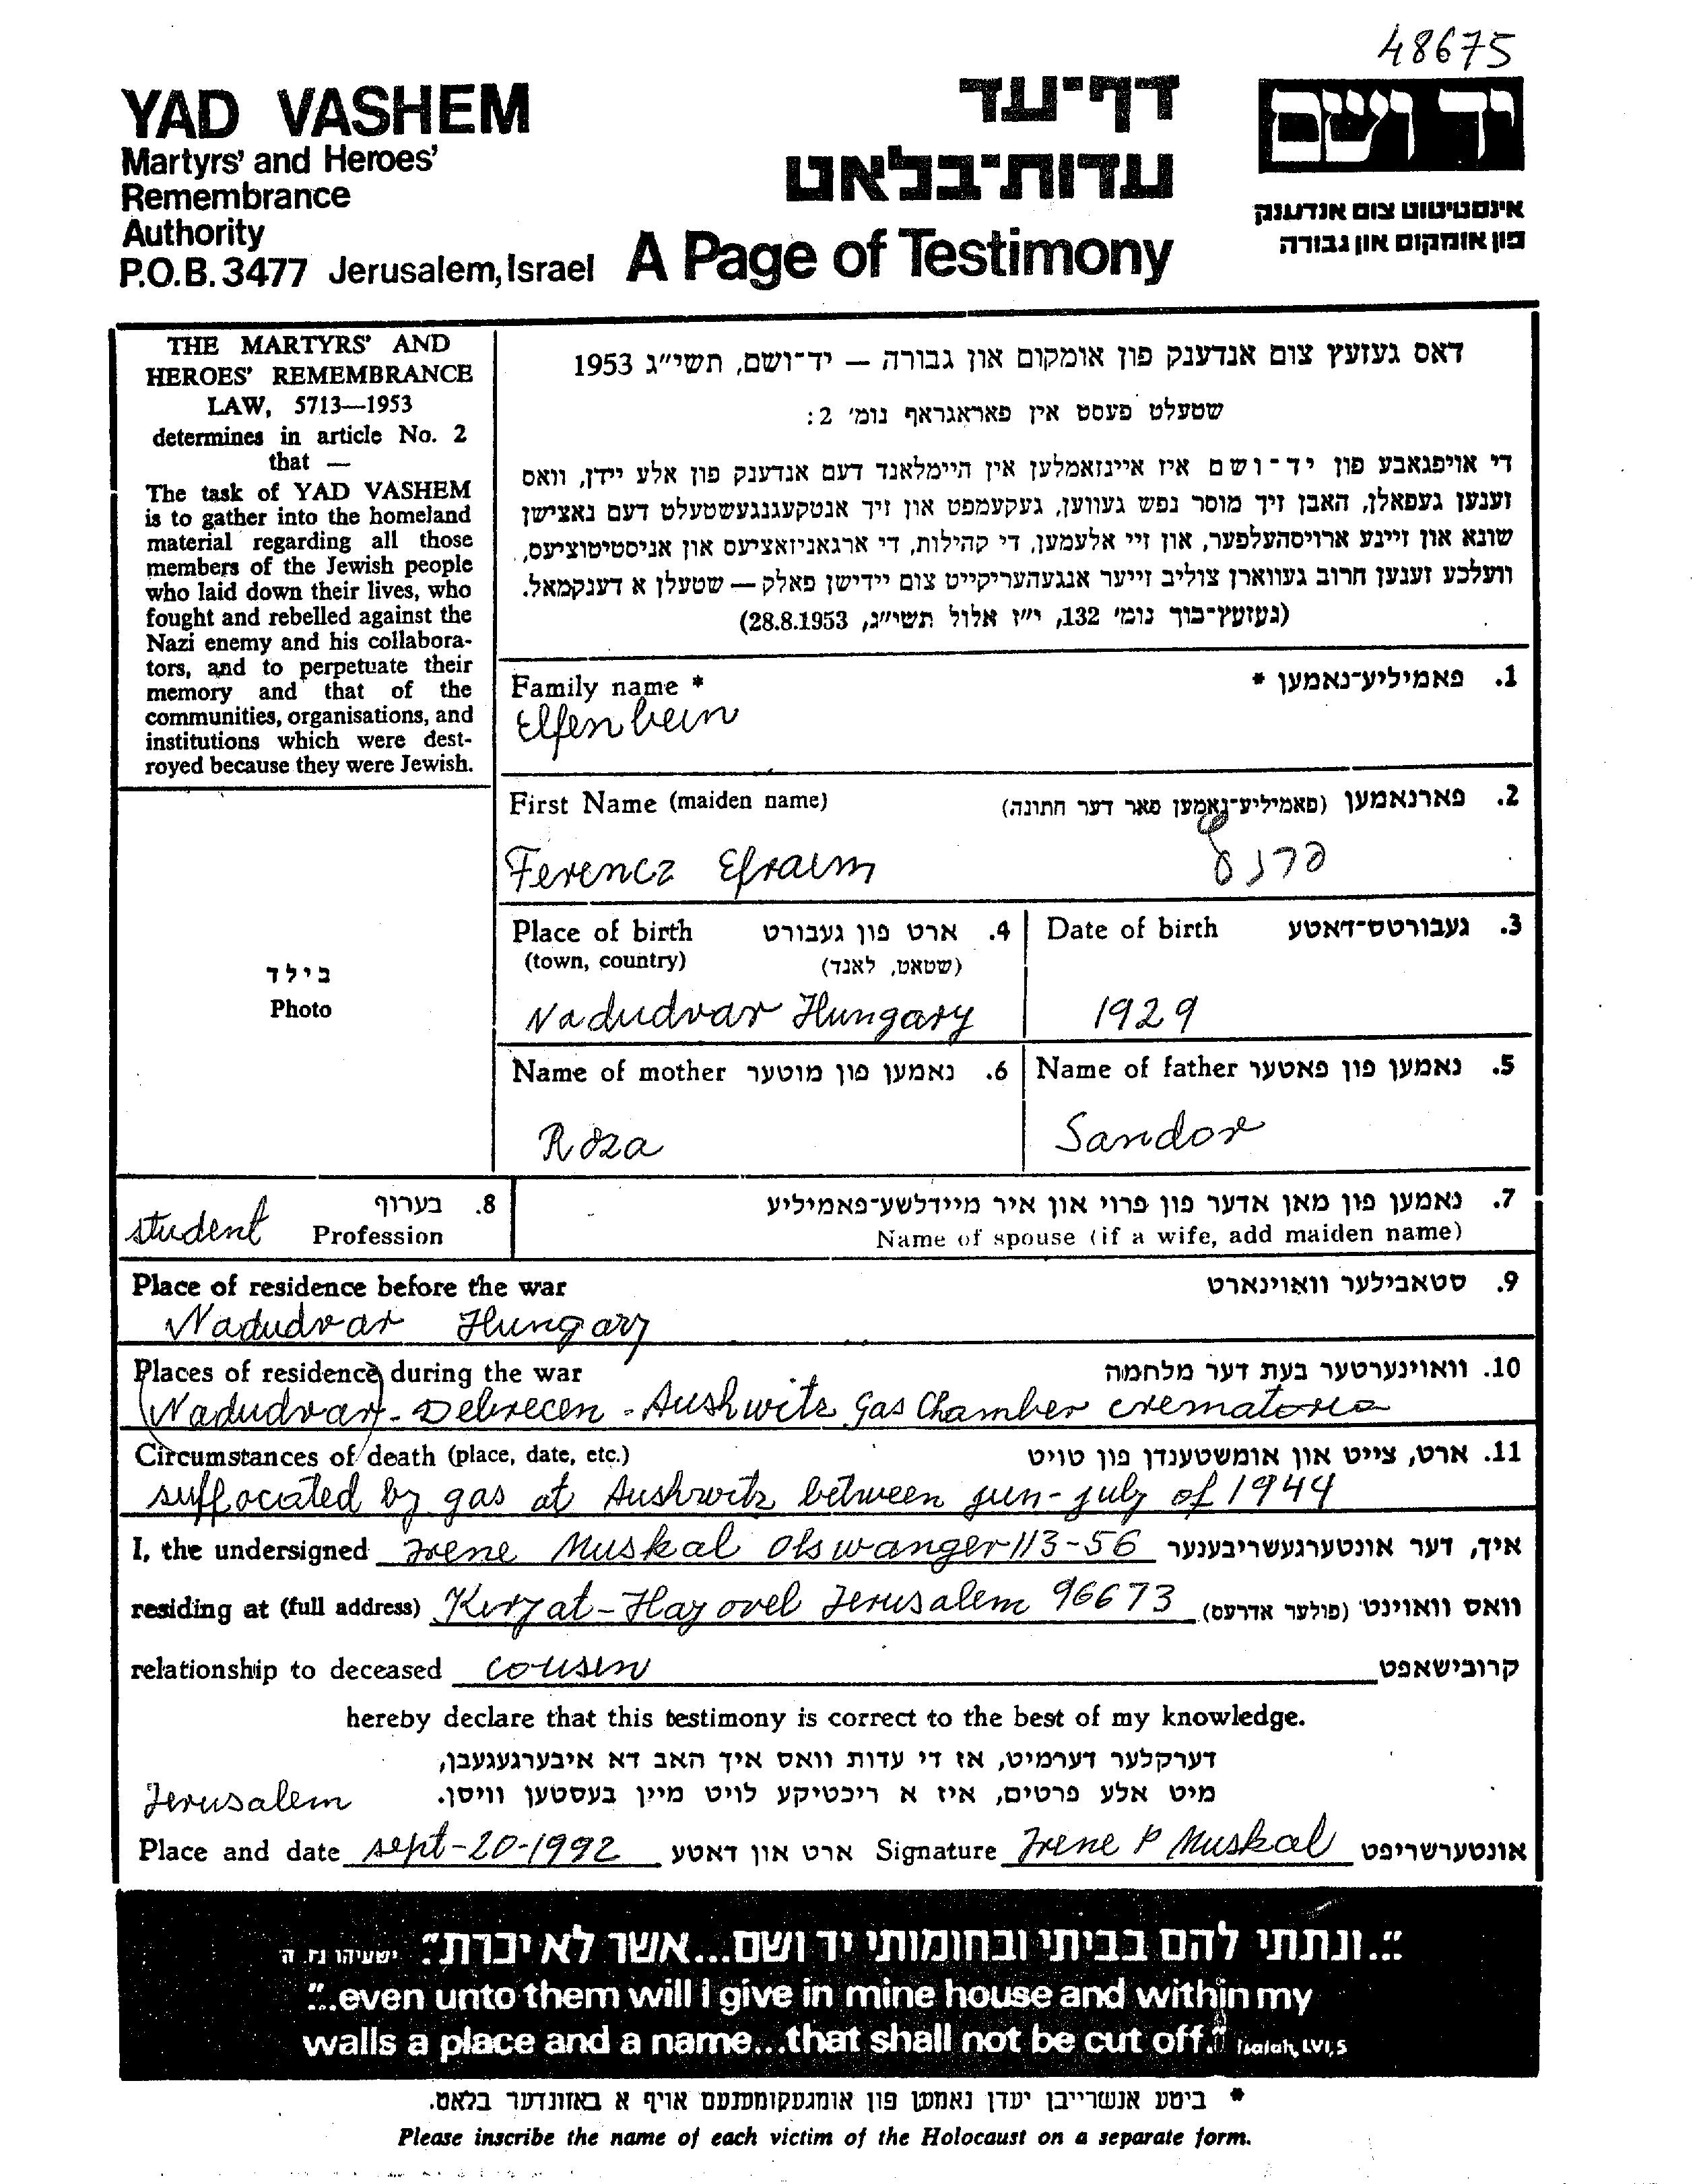 48675
YAD VASHEM
Martyrs' and Heroes'
Remembrance
Authority
P.O.B. 3477 Jerusalem, Israel
דף־עד
עדות־בלאט
A Page of Testimony
יד ושם
אינסטיטוט צום אנדענק
פון אומקום און גבורה
THE MARTYRS' AND
HEROES' REMEMBRANCE
LAW, 5713—1953
determines in article No. 2
that —
The task of YAD VASHEM
is to gather into the homeland
material regarding all those
members of the Jewish people
who laid down their lives, who
fought and rebelled against the
Nazi enemy and his collabora-
tors, and to perpetuate their
memory and that of the
communities, organisations, and
institutions which were dest-
royed because they were Jewish.
דאס געזעץ צום אנדענק פון אומקום און גבורה — יד־ושם, תשי״ג 1953
שטעלט פעסט אין פאראגראף נומ׳ 2:
די אויפגאבע פון יד־ושם איז איינזאמלען אין היימלאנד דעם אנדענק פון אלע יידן, וואס
זענען געפאלן, האבן זיך מוסר נפש געווען, געקעמפט און זיך אנטקעגנגעשטעלט דעם נאצישן
שונא און זיינע ארויסהעלפער, און זיי אלעמען, די קהילות, די ארגאניזאציעס און אינסטיטוציעס,
וועלכע זענען חרוב געווארן צוליב זייער אנגעהעריקייט צום יידישן פאלק — שטעלן א דענקמאל.
(געזעץ־בוך נומ׳ 132, י״ז אלול תשי״ג, 28.8.1953)
Family name *
1. פאמיליע־נאמען *
Elfenbein
First Name (maiden name)
2. פארנאמען (פאמיליע־נאמען פאר דער חתונה)
Ferencz Efraim
Place of birth 4. ארט פון געבורט
(town, country) (שטאט, לאנד)
Nadudvar Hungary
Date of birth 3. געבורטס־דאטע
1929
Name of mother 6. נאמען פון מוטער
Roza
Name of father 5. נאמען פון פאטער
Sandor
בילד
Photo
8. בערוף
student Profession
7. נאמען פון מאן אדער פון פרוי און איר מיידלשע־פאמיליע
Name of spouse (if a wife, add maiden name)
Place of residence before the war 9. סטאבילער וואוינארט
Nadudvar Hungary
Places of residence during the war 10. וואוינערטער בעת דער מלחמה
Nadudvar - Debrecen - Aushwitz gas Chamber crematoria
Circumstances of death (place, date, etc.) 11. ארט, צייט און אומשטענדן פון טויט
suffocated by gas at Aushwitz between jun - july of 1944
I, the undersigned Irene Muskal Olswanger 113-56 איך, דער אונטערגעשריבענער
residing at (full address) Kiryat-Hayovel Jerusalem 96673 וואס וואוינט (פולער אדרעס)
relationship to deceased cousin קרובישאפט
hereby declare that this testimony is correct to the best of my knowledge.
דערקלער דערמיט, אז די עדות וואס איך האב דא איבערגעגעבן,
מיט אלע פרטים, איז א ריכטיקע לויט מיין בעסטען וויסן.
Jerusalem
Place and date sept-20-1992 ארט און דאטע Signature Irene P Muskal אונטערשריפט
"...ונתתי להם בביתי ובחומותי יד ושם...אשר לא יכרת" ישעיהו נו, ה
"...even unto them will I give in mine house and within my
walls a place and a name...that shall not be cut off." Isaiah, LVI, 5
* ביטע אנשרייבן יעדן נאמען פון אומגעקומענעם אויף א באזונדער בלאט.
Please inscribe the name of each victim of the Holocaust on a separate form.